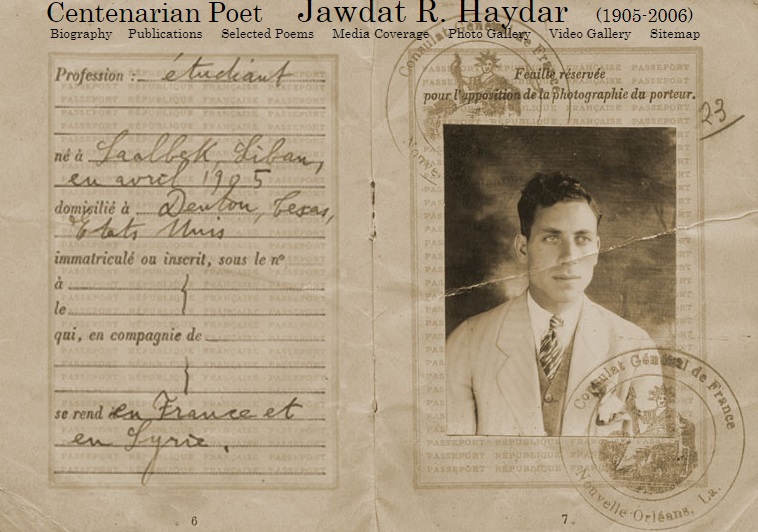 Centenarian Poet Jawdat R. Haydar (1905-2006)
Biography Publications Selected Poems Media Coverage Photo Gallery Video Gallery Sitemap
Profession :- étudiant
né à Baalbek, Liban,
en avril 1905
domicilié à Denton, Texas,
Etats Unis
immatriculé ou inscrit, sous le nº
à
le
qui, en compagnie de
se rend en France et
en Syrie.
6
Consulat Général de France
Feuille réservée
pour l'apposition de la photographie du porteur.
23
Consulat Général de France
Nouvelle Orléans, La.
7.